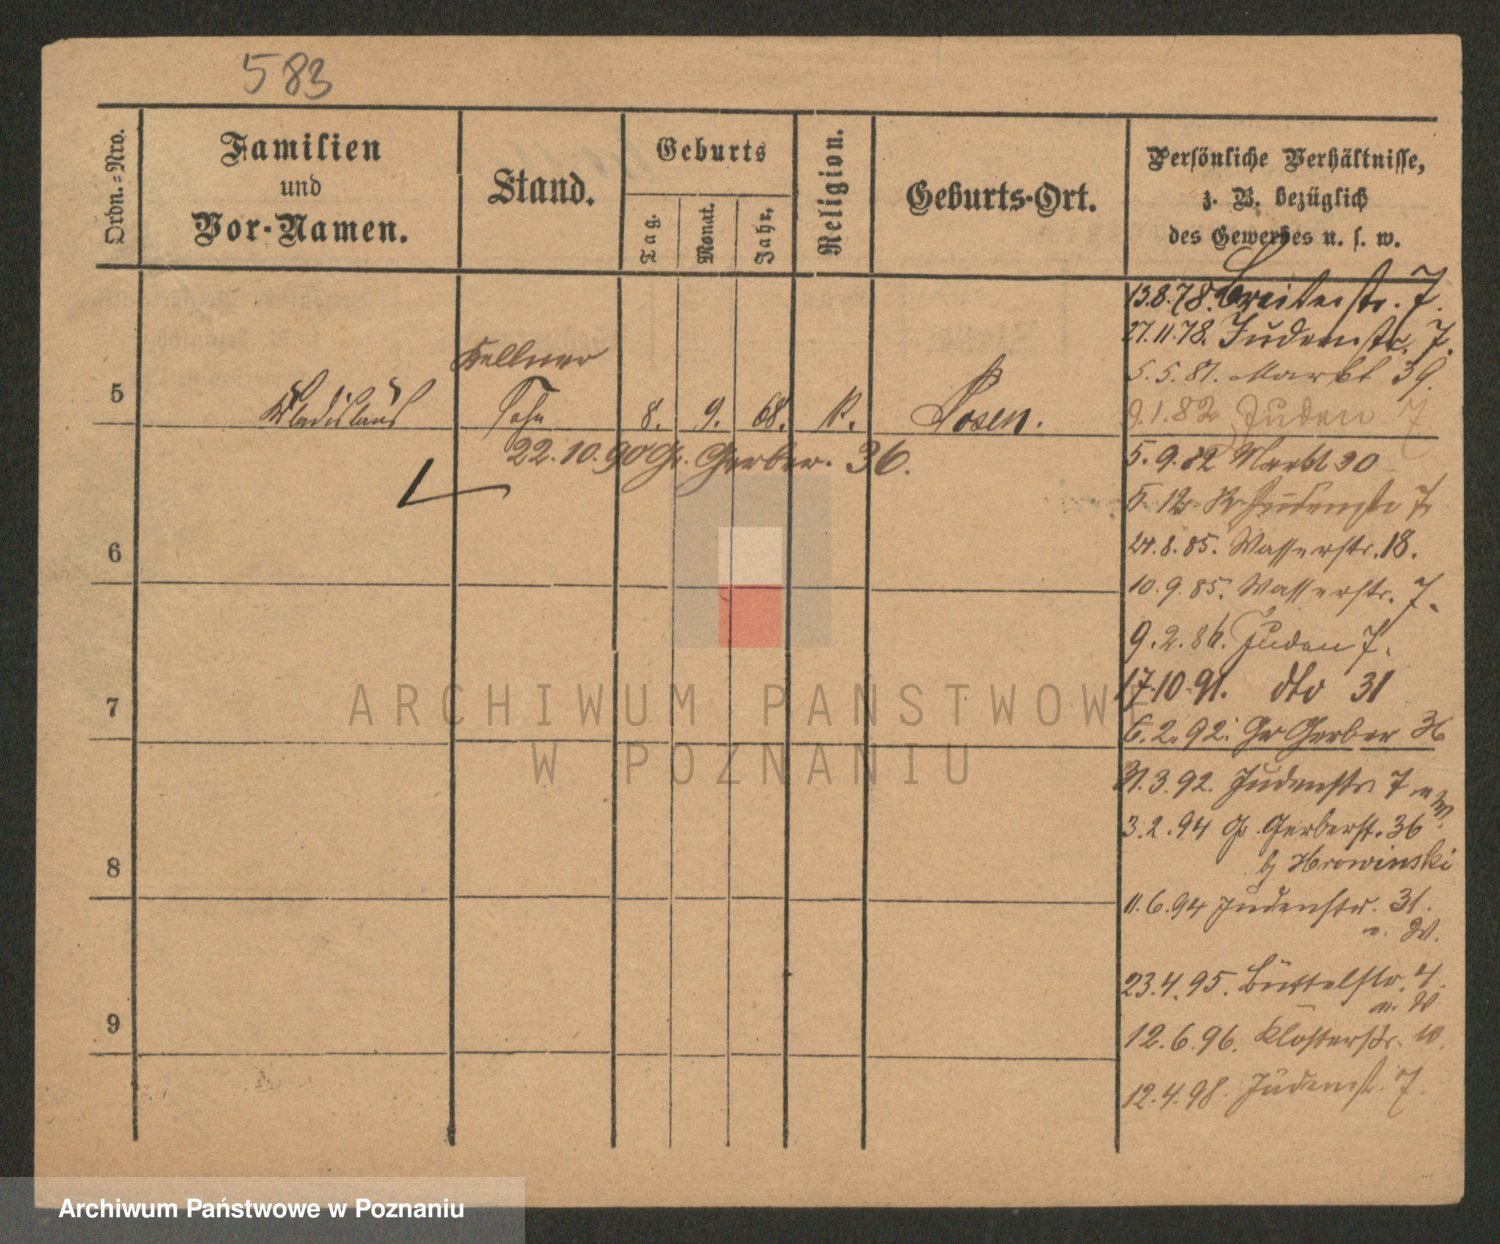 583
Ordn.-Nro.
Familien
und
Vor-Namen.
Stand.
Geburts
Tag.
Monat.
Jahr.
Religion.
Geburts-Ort.
Persönliche Verhältnisse,
z. B. bezüglich
des Gewerbes u. s. w.
13.8.78. Breitestr. 7.
27.11.78. Judenstr. 7.
5.5.81. Markt 39.
9.1.82 Juden 7
Kellner
5 Wladislaus Sohn 8. 9. 68. K. Posen.
22.10.90 Gr. Gerber. 36.
5.9.82 Markt 30
5.12. Judenstr 7
6
24.8.85. Wasserstr. 18.
10.9.85. Wasserstr. 7.
9.2.86. Juden 7.
17.10.91. dto 31
7
6.2.92. Gr Gerber 36
31.3.92. Judenstr 7
3.2.94 Gr. Gerberst. 36
8
11.6.94 Judenstr. 31.
23.4.95. Büttelstr. 4.
9
12.6.96. Klosterstr.
12.4.98. Judenst. 7.
ARCHIWUM PAŃSTWOWE
W POZNANIU
Archiwum Państwowe w Poznaniu